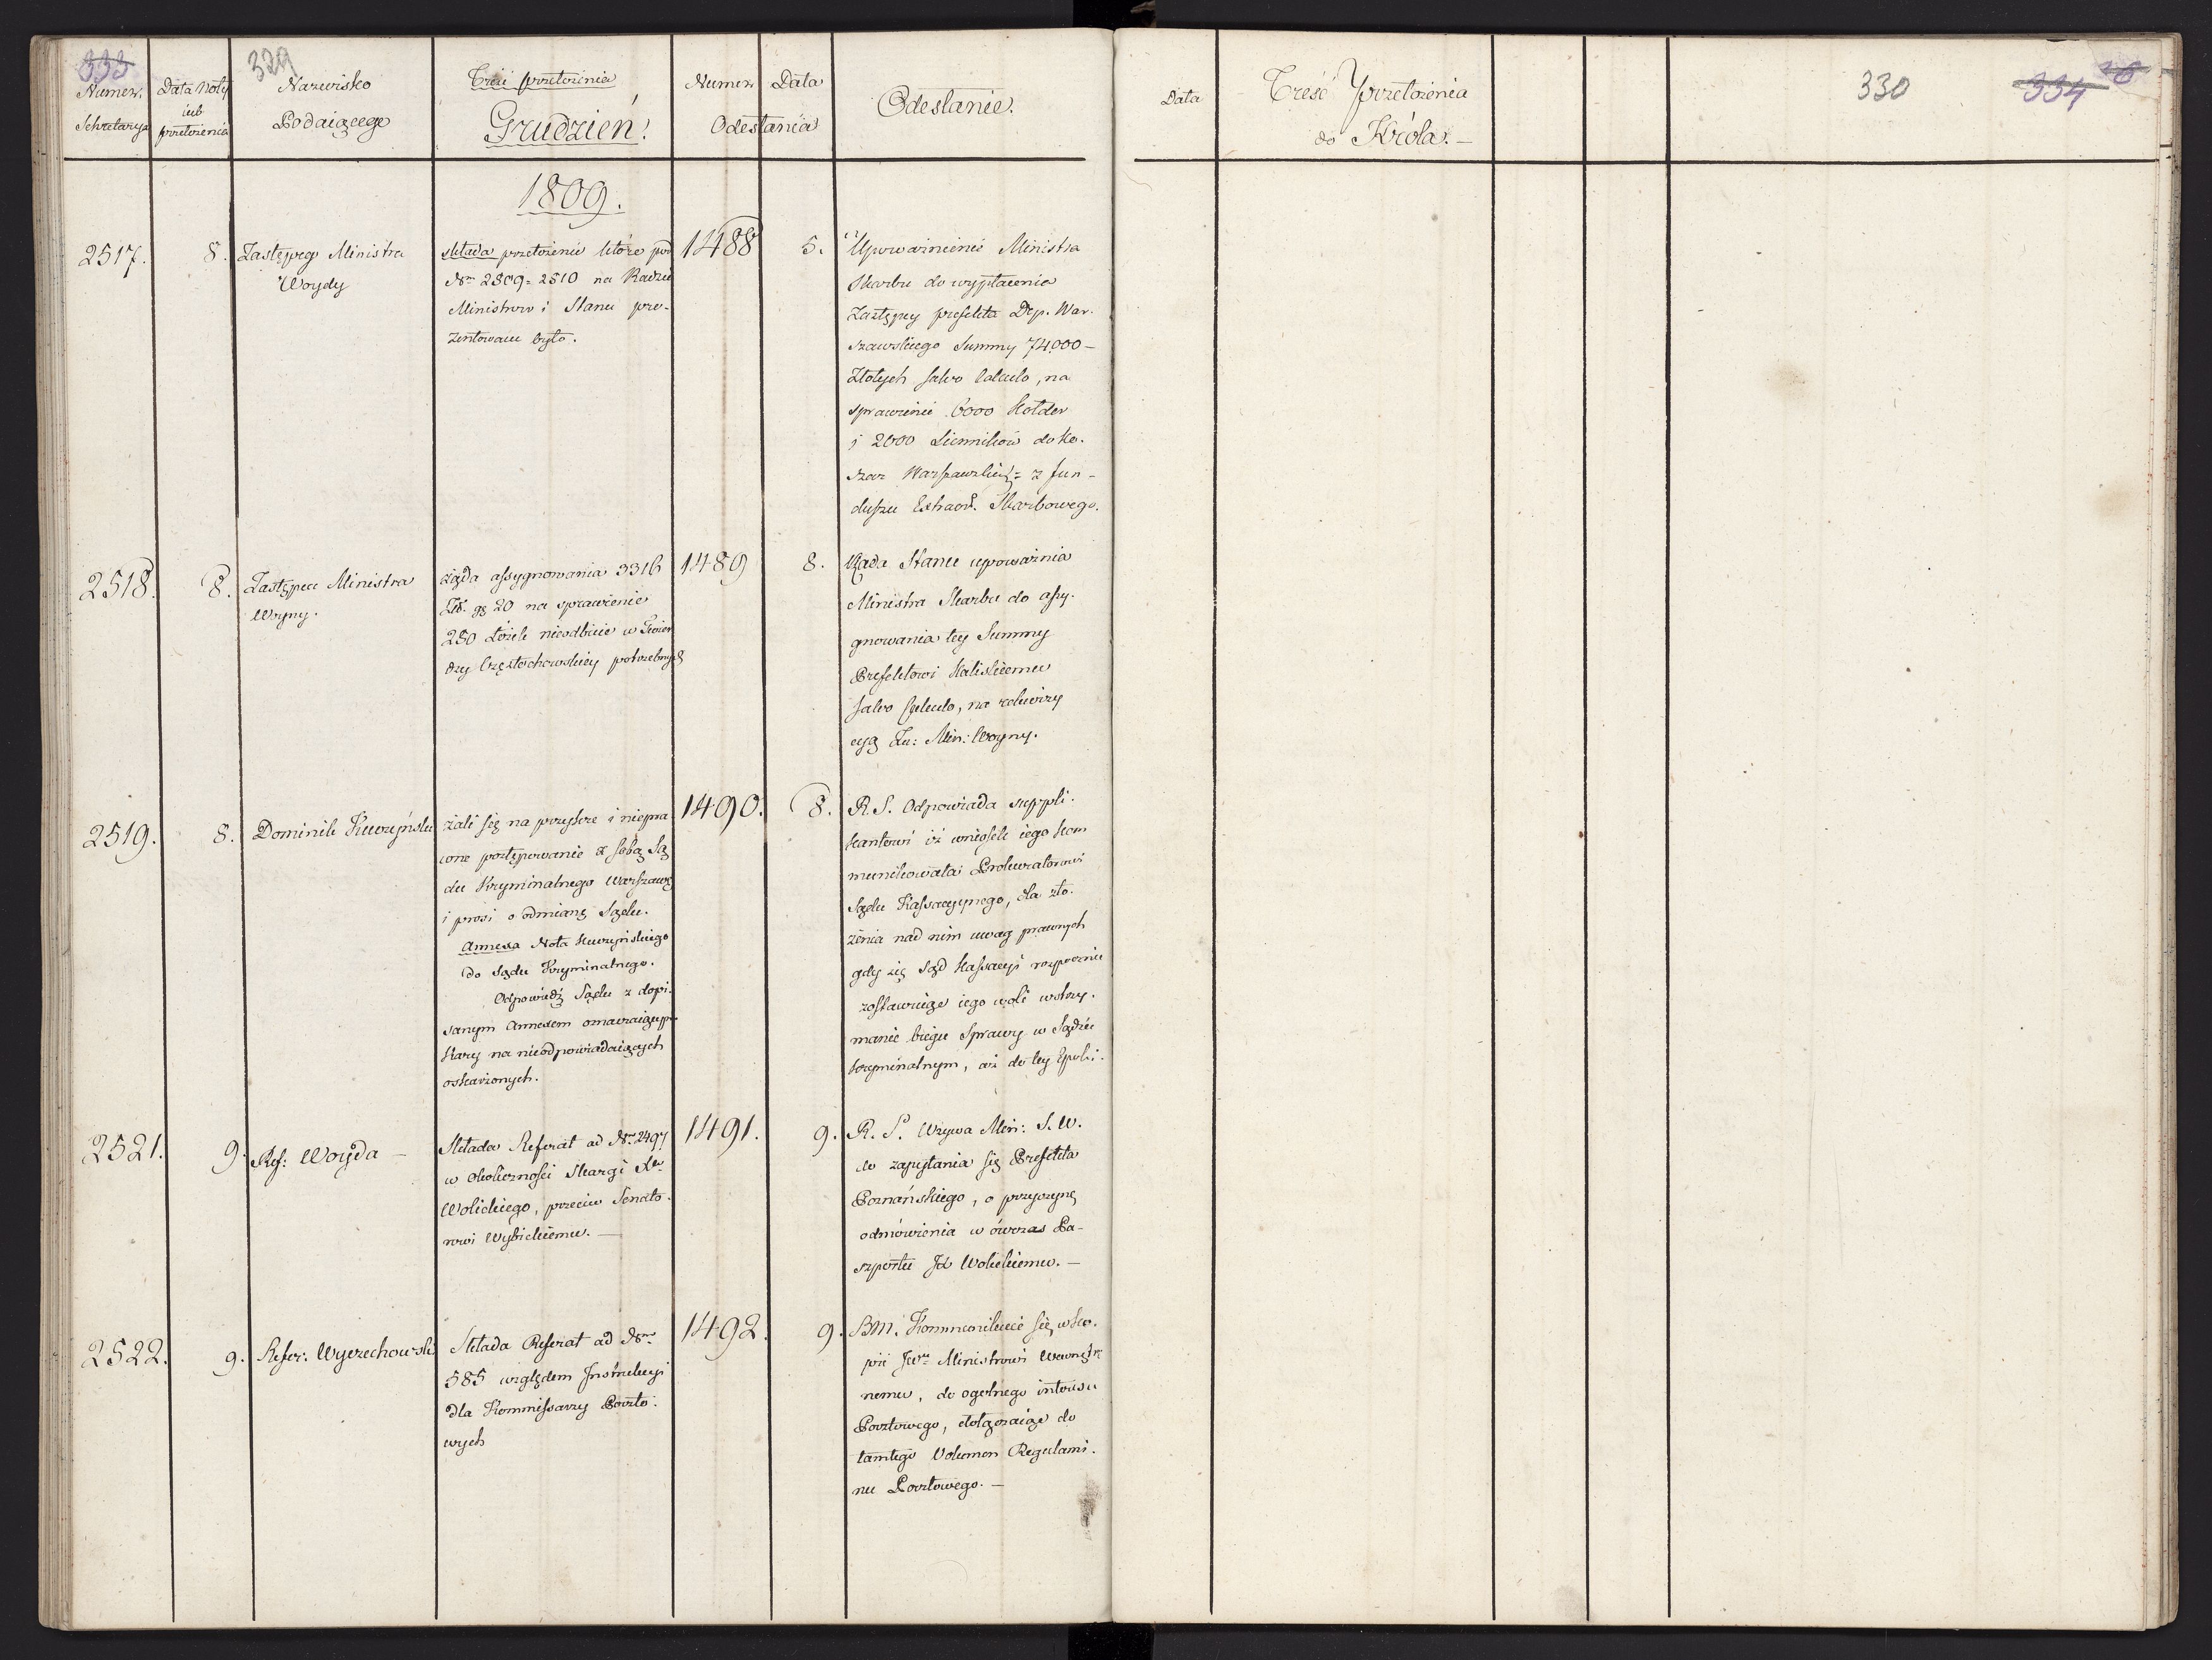 333
329
Numer.
Sekretarza
Data Noty
lub
przełożenia
Nazwisko
Podaiącego
Treść przełożenia
Grudzień.
Numer
Data
Odesłania
Odesłanie.
Data
Treść przełożenia
do Króla.–
330
334
1809.
2517.
8.
Zastępcy Ministra
Woydy
składa przełożenie które pod
Nrm 2509=2510 na Radzie
Ministrow i Stanu pre-
zentowane było.
1488
5.
Upoważnienie Ministra
Skarbu do wypłacenia
Zastępcy prefekta Dep. War-
szawskiego Summy 74,000–
Złotych salvo Calculo, na
sprawienie 6000 Kołder
i 2000 Sienników do Ko-
szar Warszawskich = z fun-
duszu Extraord. Skarbowego.
2518.
8.
Zastępca Ministra
Woyny.
żąda assygnowania 3316
Zł. gr 20 na sprawienie
250 Łóżek nieodbicie w Twier
dzy Częstochowskiey potrzebnych
1489
8.
Rada Stanu upoważnia
Ministra Skarbu do assy-
gnowania tey Summy
Prefektowi Kaliskiemu
salvo Calculo, na rekwizy
cyą Za: Min: Woyny.
2519.
8.
Dominik Kuczyński
żali się na przykre i niepra
wne postępowanie z sobą Są
du Kryminalnego Warszaws
i prosi o odmianę Sądu.
Annexa Nota Kuczyńskiego
do Sądu Kryminalnego.
Odpowiedź Sądu z dopi-
sanym Annexem oznaczaiącym
Kary na nieodpowiadaiących
oskarżonych.
1490.
8.
R. S. Odpowiada suppli-
kantowi iż wniosek iego kom
munikowała Prokuratorowi
Sądu Kassacyinego, dla zło-
żenia nad nim uwag prawnych
gdy się Sąd Kassacyi rozpocznie
zostawuiąc iego woli wstrzy-
manie biegu Sprawy w Sądzie
kryminalnym, aż do tey Epoki.
2521.
9.
Ref: Woyda –
Składa Referat ad Nrm 2497
w okoliczności Skargi Xdza
Wolickiego, przeciw Senato-
rowi Wybickiemu. –
1491.
9.
R. S. Wzywa Min: S. W.
do zapytania się Prefekta
Poznańskiego, o przyczynę
odmówienia w ówczas Pa-
szportu JX Wolickiemu. –
2522.
9.
Refer: Wyczechowski
Składa Referat ad Nrm
585 względem Instrukcyi
dla Kommissarzy Poczto-
wych
1492.
9.
BM. Kommunikuie się w Ko-
pii JWu Ministrowi Wewnętrz
nemu, do ogolnego interesu
Pocztowego, dołączaiąc do
tamtego Volumen Regulami-
nu Pocztowego. –